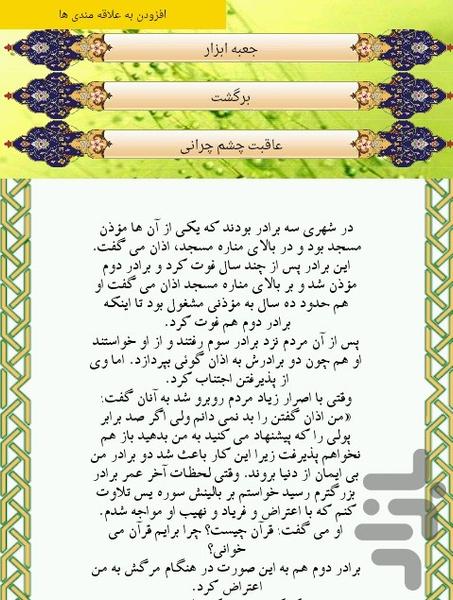 افزودن به علاقه مندی ها
جعبه ابزار
برگشت
عاقبت چشم چرانی
در شهری سه برادر بودند که یکی از آن ها مؤذن
مسجد بود و در بالای مناره مسجد، اذان می گفت.
این برادر پس از چند سال فوت کرد و برادر دوم
مؤذن شد و بر بالای مناره مسجد اذان می گفت او
هم حدود ده سال به مؤذنی مشغول بود تا اینکه
برادر دوم هم فوت کرد.
پس از آن مردم نزد برادر سوم رفتند و از او خواستند
او هم چون دو برادرش به اذان گوئی بپردازد. اما وی
از پذیرفتن اجتناب کرد.
وقتی با اصرار زیاد مردم روبرو شد به آنان گفت:
«من اذان گفتن را بد نمی دانم ولی اگر صد برابر
پولی را که پیشنهاد می کنید به من بدهید باز هم
نخواهم پذیرفت زیرا این کار باعث شد دو برادر من
بی ایمان از دنیا بروند. وقتی لحظات آخر عمر برادر
بزرگترم رسید خواستم بر بالینش سوره یس تلاوت
کنم که با اعتراض و فریاد و نهیب او مواجه شدم.
او می گفت: قرآن چیست؟ چرا برایم قرآن می
خوانی؟
برادر دوم هم به این صورت در هنگام مرگش به من
اعتراض کرد.
بازار